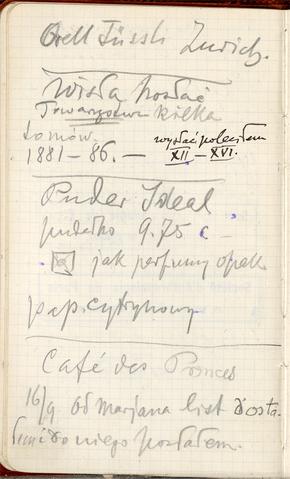 Orell Füssli Zurich.
Wisła posłać
Towarzystwu kilka
tomów
1881 – 86. –
wysłać poleciłem
XII – XVI.
Puder Ideal
pudełko 9.75 c –
jak perfumy opak
pap. cytrynowy
Café des Princes
16/9 od Marjana list dosta-
łem i do niego posłałem.